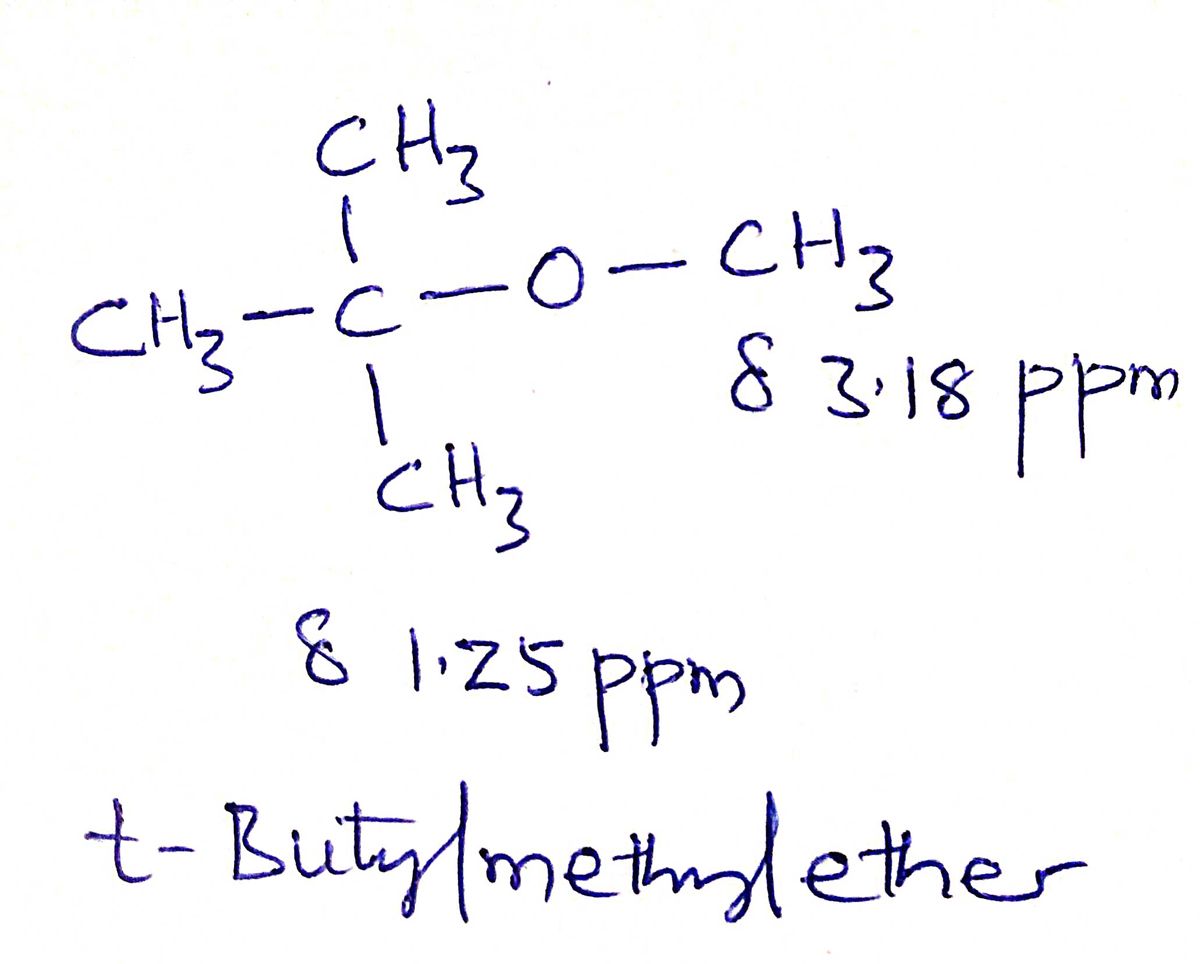 CH3
CH3-C-O-CH3
δ 3.18 ppm
CH3
δ 1.25 ppm
t-Butylmethylether